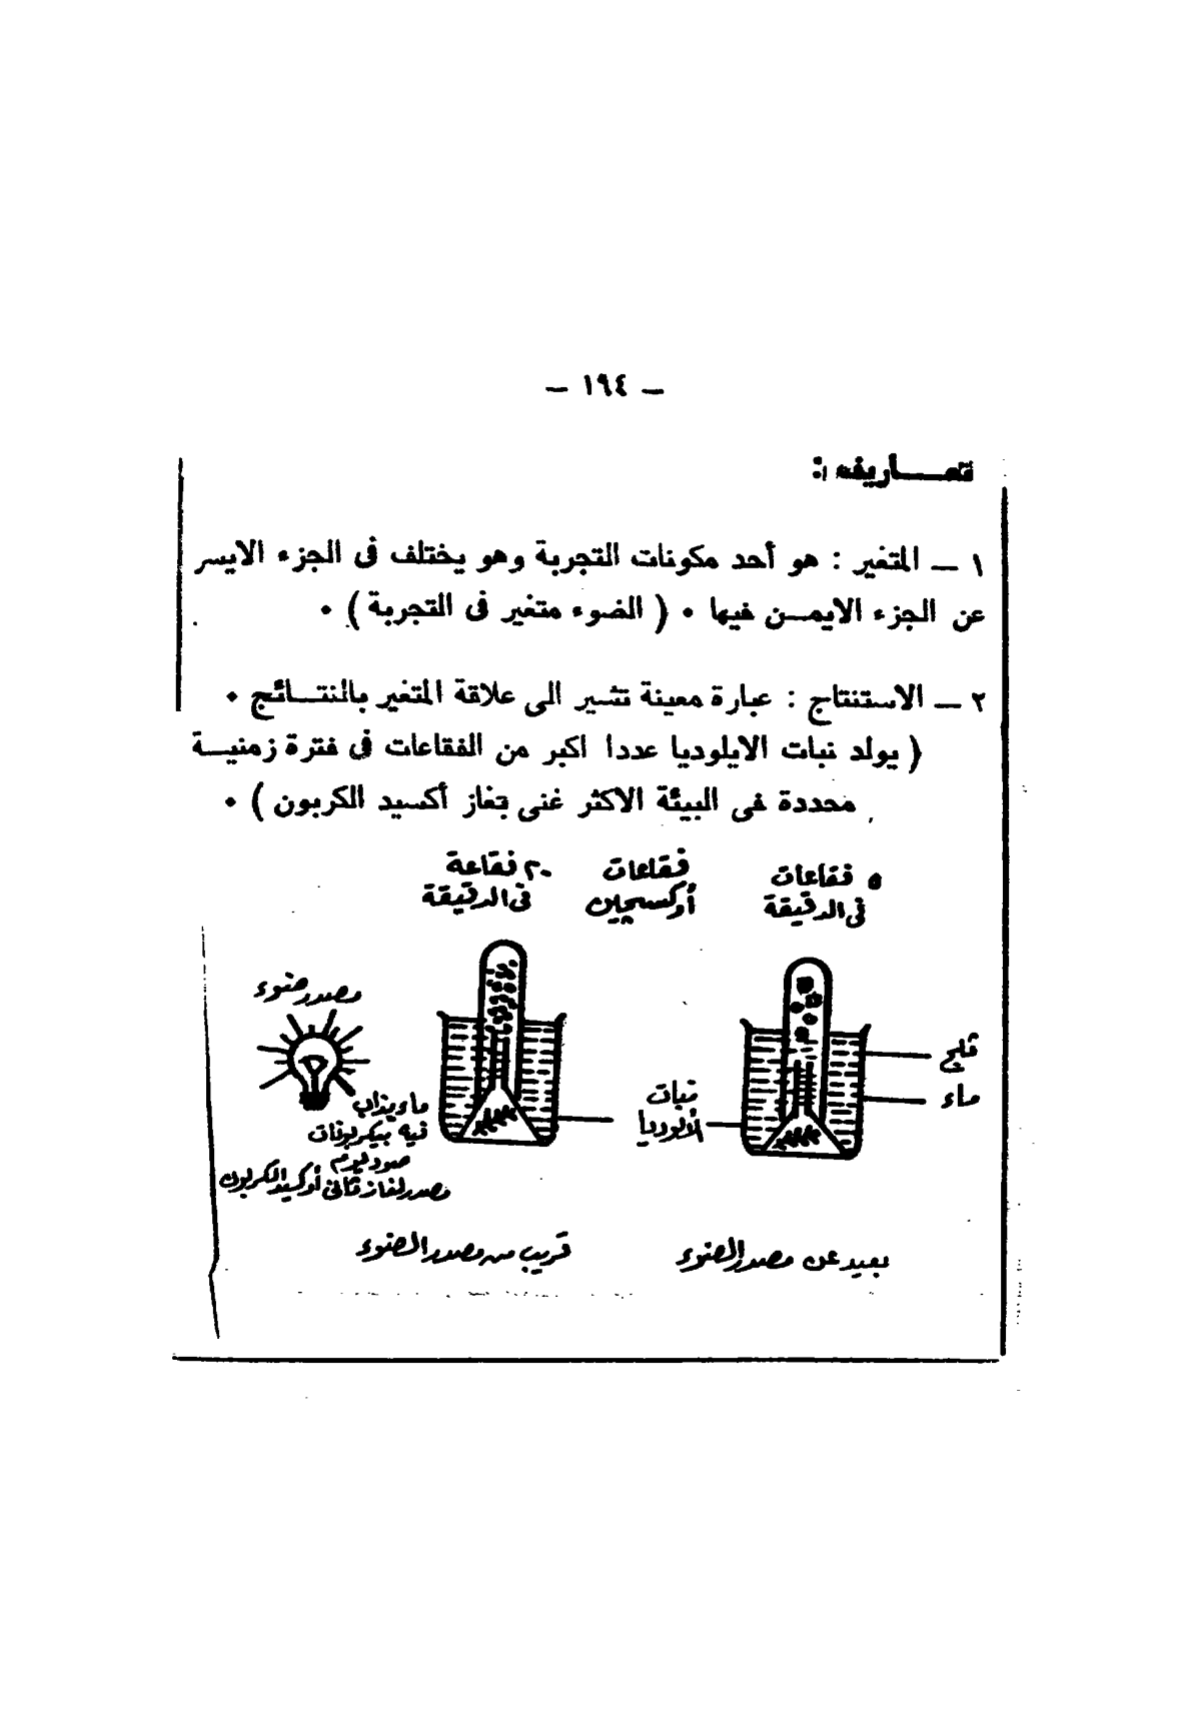 — ١٩٤ —
تعـــاريف :
١ — المتغير : هو أحد مكونات التجربة وهو يختلف فى الجزء الايسر
عن الجزء الايمـــن فيها ٠ ( الضوء متغير فى التجربة ) ٠
٢ — الاستنتاج : عبارة معينة تشير الى علاقة المتغير بالنتـــائج ٠
( يولد نبات الايلوديا عددا اكبر من الفقاعات فى فترة زمنيـــة
محددة فى البيئة الاكثر غنى بغاز أكسيد الكربون ) ٠
٥ فقاعات
فى الدقيقة
فقاعات
أوكسجين
٢٠ فقاعة
فى الدقيقة
مصدر ضوء
ثلج
ماء
نبات
الألوديا
ماء يذاب
فيه بيكربونات
صوديوم
مصدر لغاز ثانى أوكسيد الكربون
بعيد عن مصدر الضوء
قريب من مصدر الضوء